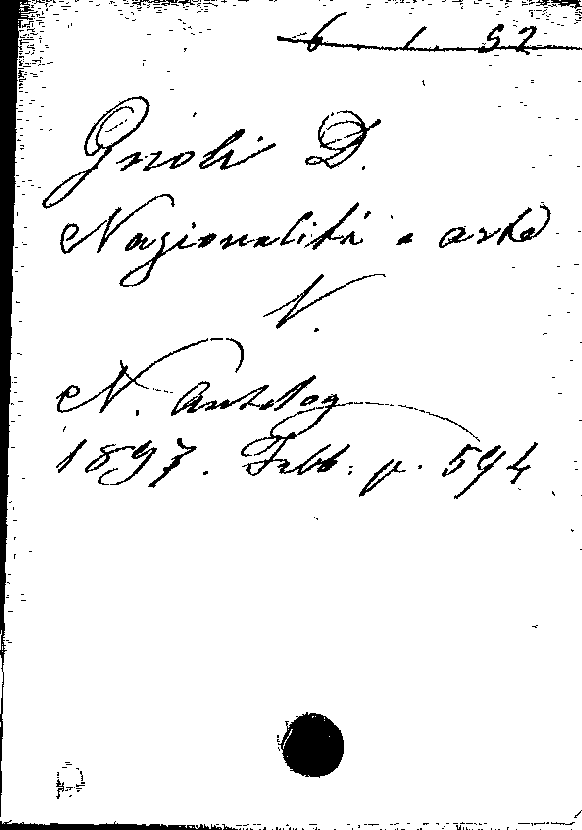 6. 1. 52
Gnoli D.
Nazionalità e arte
N.
N. Antolog
1897. Febb. p. 594